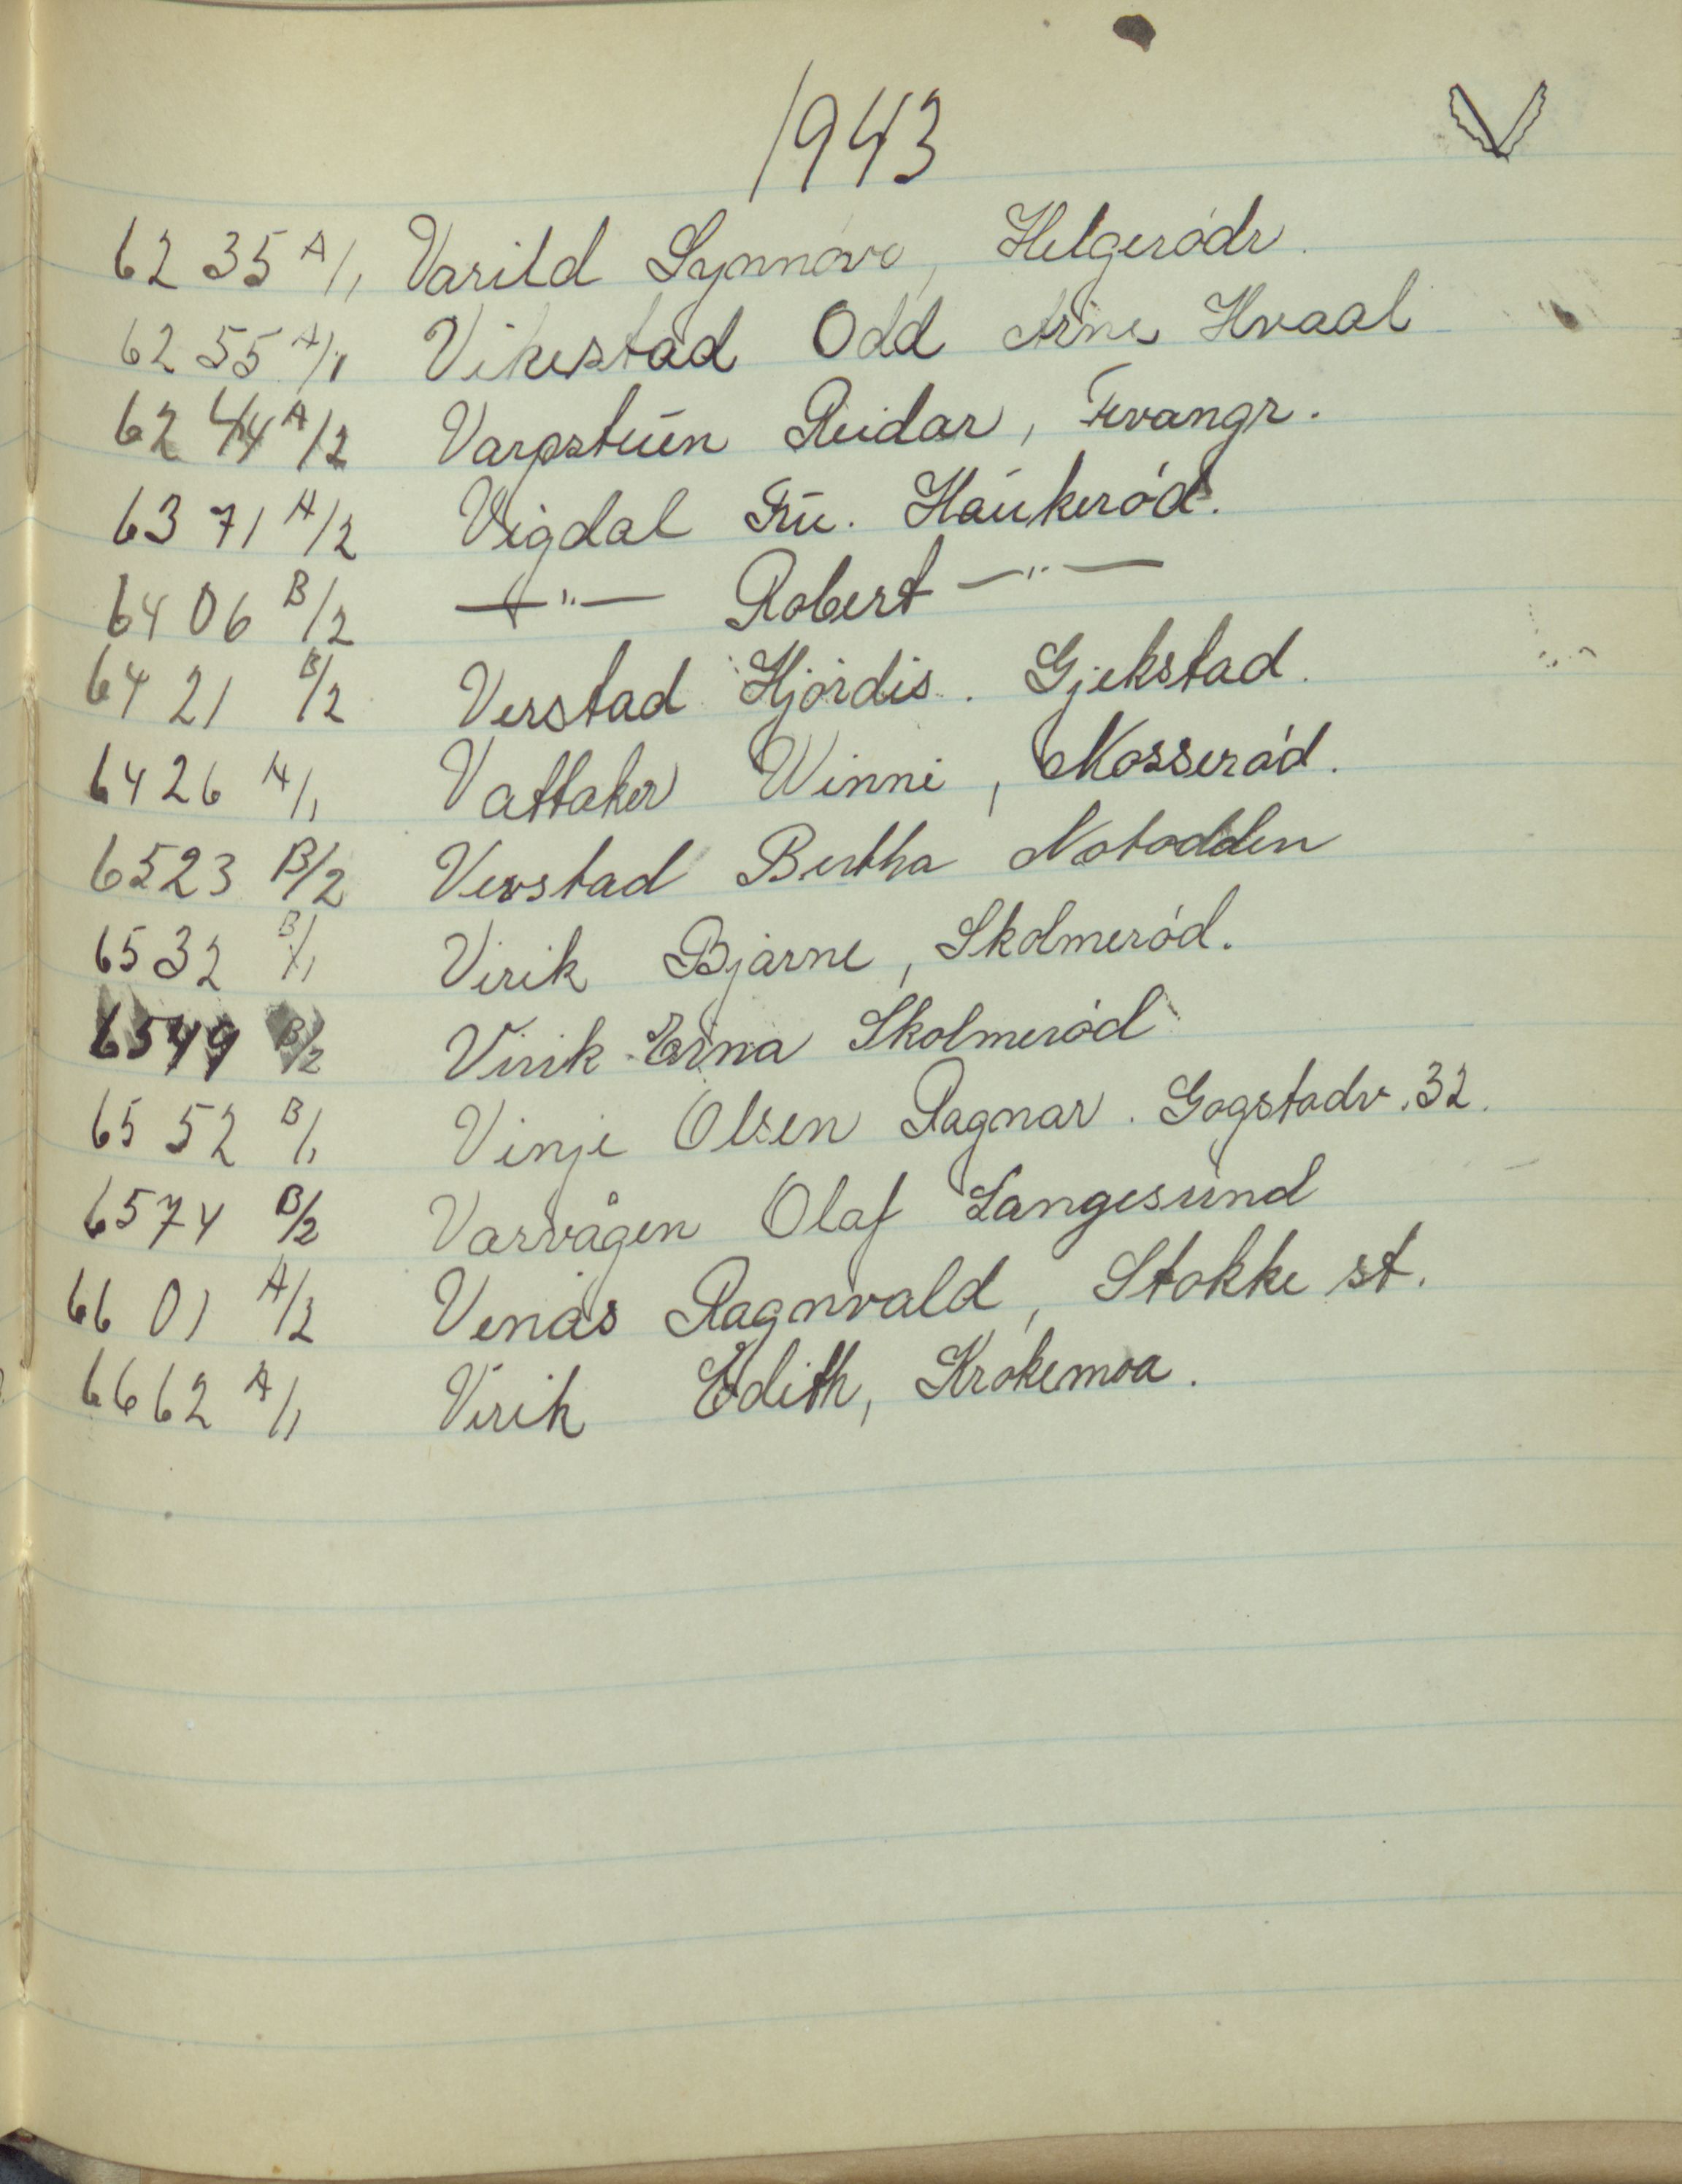 1943 V
6235 A/1 Varild Synnóve, Helgeródv.
6255 A/1 Vikestad Odd Arne Hvaal
6244 A/2 Varpstuen Reidar, Furvangr.
6371 A/2 Vigdal Fru. Haukeród.
6406 B/2 —"— Robert —"—
6421 B/2 Verstad Hjórdis. Gjekstad.
6426 A/1 Vattaker Winni, Mosseród.
6523 B/2 Verstad Bertha Notodden
6532 B/1 Virik Bjarne, Skolmeród.
6549 B/2 Virik Erna Skolmeród
6552 B/1 Vinje Olsen Ragnar. Gogstadv. 32.
6574 B/2 Varvågen Olaf Langesund
6601 A/2 Venås Ragnvald, Stokke st.
6662 A/1 Virik Edith, Krokemoa.